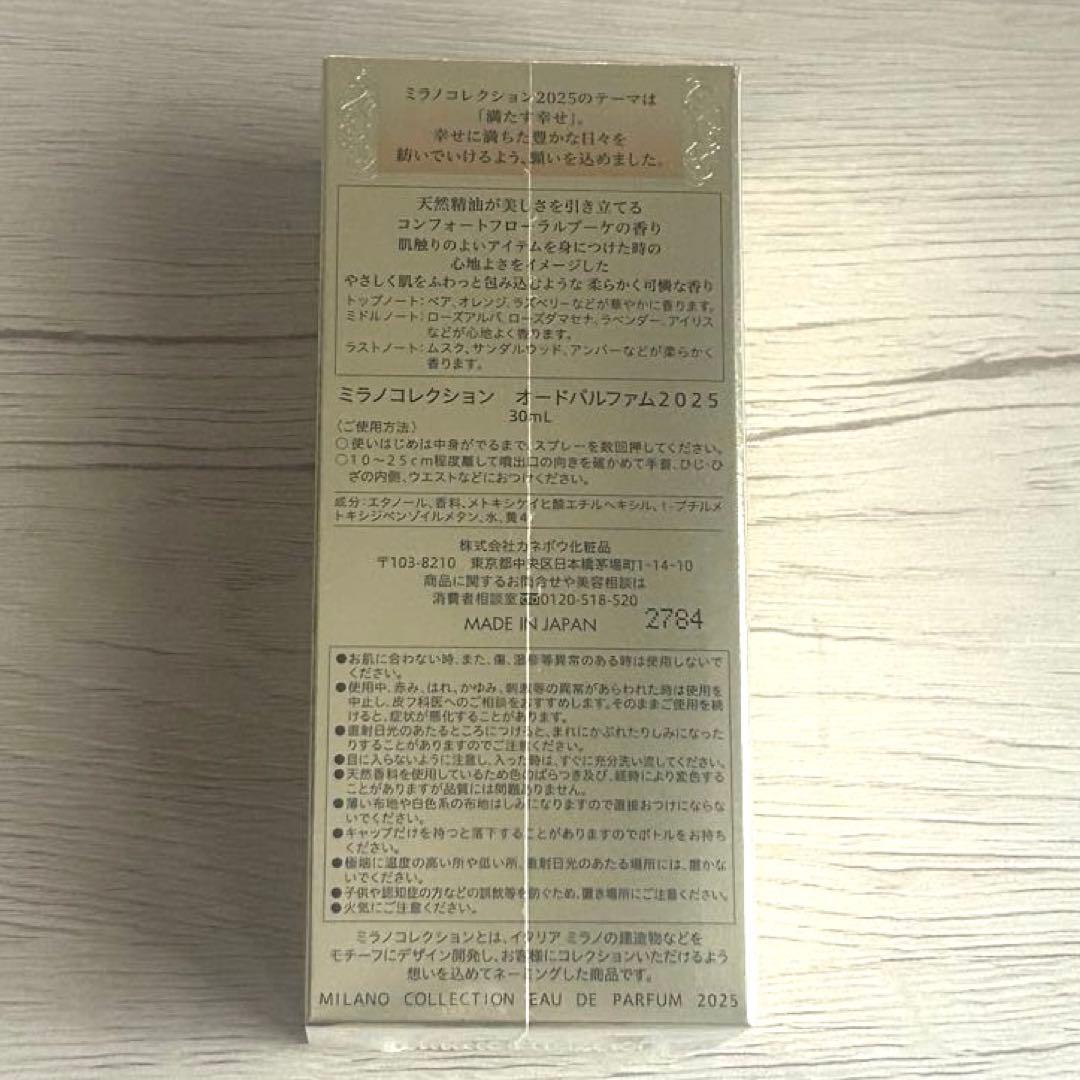 ミラノコレクション2025のテーマは
「満たす幸せ」。
幸せに満ちた豊かな日々を
紡いでいけるよう、願いを込めました。
天然精油が美しさを引き立てる
コンフォートフローラルブーケの香り
肌触りのよいアイテムを身につけた時の
心地よさをイメージした
やさしく肌をふわっと包み込むような 柔らかく可憐な香り
トップノート:ペア、オレンジ、ラズベリーなどが華やかに香ります。
ミドルノート:ローズアルバ、ローズダマセナ、ラベンダー、アイリス
などが心地よく香ります。
ラストノート:ムスク、サンダルウッド、アンバーなどが柔らかく
香ります。
ミラノコレクション オードパルファム2025
30mL
〈ご使用方法〉
○使いはじめは中身がでるまで、スプレーを数回押してください。
○10〜25cm程度離して噴出口の向きを確かめて手首、ひじ・ひ
ざの内側、ウエストなどにおつけください。
成分:エタノール、香料、メトキシケイヒ酸エチルヘキシル、t-ブチルメ
トキシジベンゾイルメタン、水、黄4
株式会社カネボウ化粧品
〒103-8210 東京都中央区日本橋茅場町1-14-10
商品に関するお問合せや美容相談は
消費者相談室 0120-518-520
MADE IN JAPAN 2784
●お肌に合わない時、また、傷、湿疹等異常のある時は使用しないで
ください。
●使用中、赤み、はれ、かゆみ、刺激等の異常があらわれた時は使用を
中止し、皮フ科医へのご相談をおすすめします。そのままご使用を続
けると、症状が悪化することがあります。
●直射日光のあたるところにつけると、まれにかぶれたりしみになった
りすることがありますのでご注意ください。
●目に入らないように注意し、入った時は、すぐに充分洗い流してください。
●天然香料を使用しているため色のばらつき及び、経時により変色する
ことがありますが品質には問題ありません。
●薄い布地や白色系の布地はしみになりますので直接おつけにならな
いでください。
●キャップだけを持つと落下することがありますのでボトルをお持ち
ください。
●極端に温度の高い所や低い所、直射日光のあたる場所には、置かな
いでください。
●子供や認知症の方などの誤飲等を防ぐため、置き場所にご注意ください。
●火気にご注意ください。
ミラノコレクションとは、イタリア ミラノの建造物などを
モチーフにデザイン開発し、お客様にコレクションいただけるよう
想いを込めてネーミングした商品です。
MILANO COLLECTION EAU DE PARFUM 2025